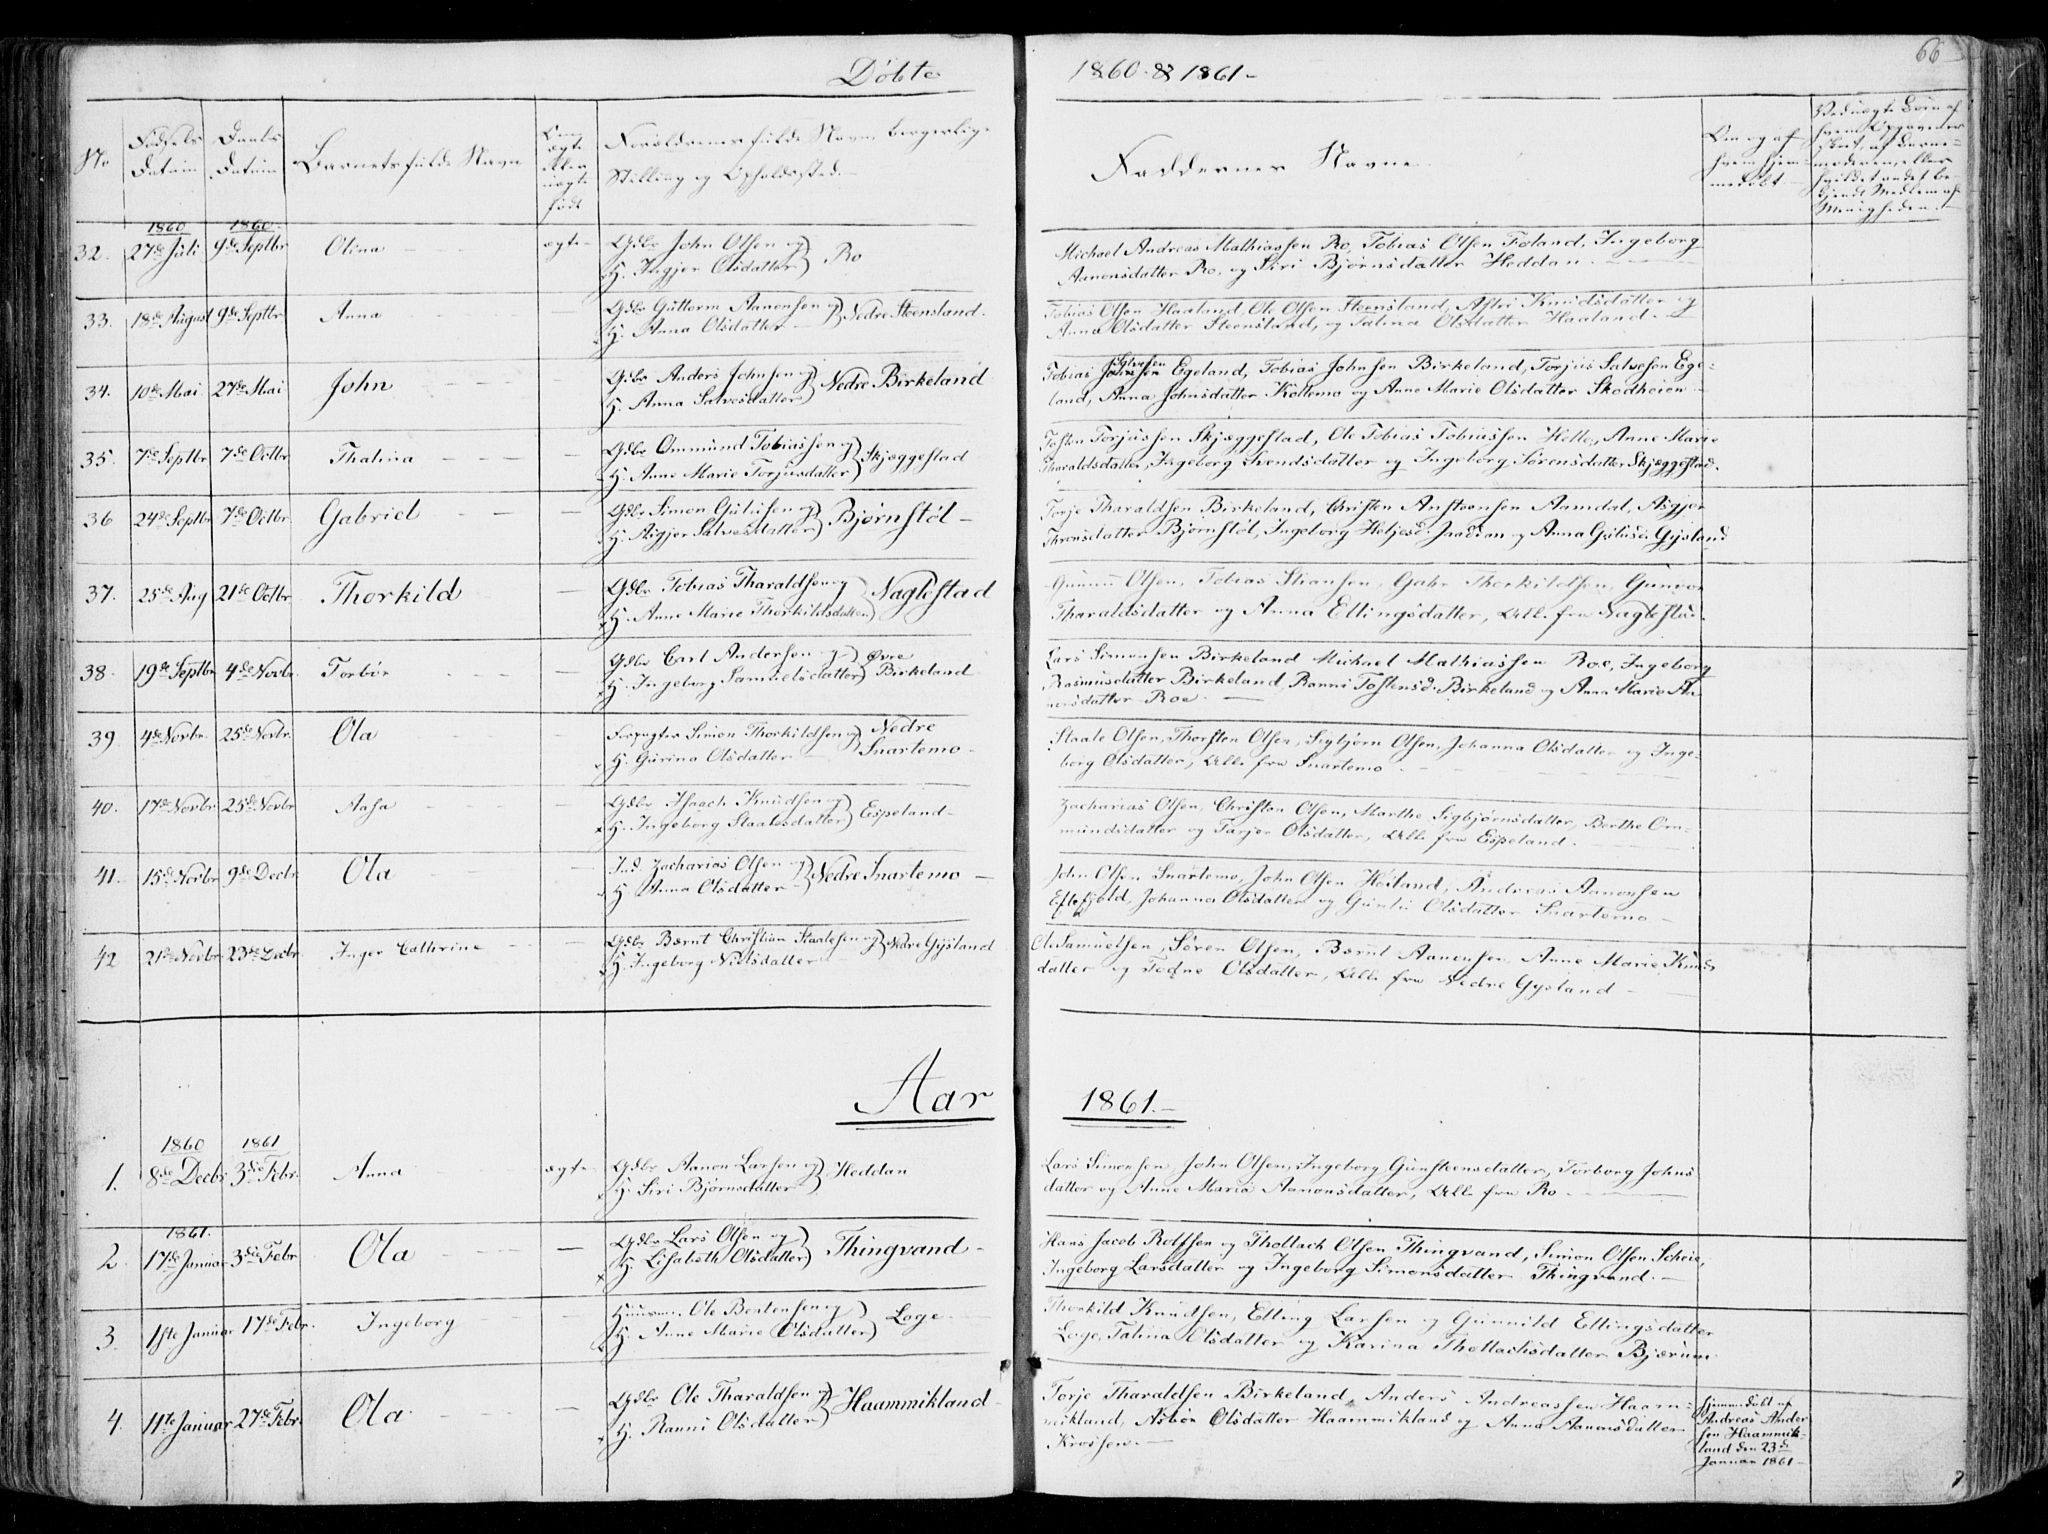 Døbte
1860 & 1861 -
66
No
Fødsels Datum
Daabs Datum
Barnets fulde Navn
Om ægte eller uægte født
Forældrenes fulde Navn, borgerlige Stilling og Opholdssted.
Faddernes Navne
Om og af hvem hjemmedøbt
1860 1860
32. 27de Juli 9de Septbr Olina ægte Gdbr John Olsen og
H. Ingjer Olsdatter } Ro
Michael Andreas Mathiassen Ro, Tobias Olsen Foland, Ingeborg
Aanonsdatter Ro, og Siri Bjørnsdatter Heddan.
33. 18de August 9de Septbr Anna — Gdbr Guttorm Aanonsen og
H. Anna Olsdatter } Nedre Steensland.
Tobias Olsen Haaland, Ole Olsen Steensland, Astri Knudsdatter og
Anna Olsdatter Steensland, og Talina Olsdatter Haaland.
34. 10de Mai 27de Mai John — Gdbr Anders Johnsen og
H. Anna Salvesdatter } Nedre Birkeland
Tobias Salvesen Egeland, Tobias Johnsen Birkeland, Torjus Salvesen Ege-
land, Anna Johnsdatter Kottemo og Anne Marie Olsdatter Skodheien
35. 7de Septbr 7de Octbr Thalina — Gdbr Ommund Tobiassen og
H. Anne Marie Torjusdatter } Skjæggestad
Tosten Torjussen Skjæggestad, Ole Tobias Tobiassen Helle, Anne Marie
Tharaldsdatter, Ingeborg Svendsdatter og Ingeborg Sørensdatter Skjæggestad.
36 24de Septbr 7de Octbr Gabriel — Gdbr Simon Gulufsen og
H. Asgjer Salvesdatter } Bjørnstøl -
Torje Tharaldsen Birkeland, Christen Anstensen Aamdal, Asgjer
Thronsdatter Bjørnstøl, Ingeborg Heljesd. Jaadan og Anna Gulufsd. Gysland
37. 25de Aug 21de Octbr Thorkild — Gdbr Tobias Tharaldsen og
H. Anne Marie Thorkildsdatter } Naglestad
Gunuf Olsen, Tobias Stiansen, Gabr Thorkildsen, Gunvor
Tharaldsdatter og Anna Ellingsdatter, Alle fra Naglestad.
38. 19de Septbr 4de Novbr Torbør — Gdbr Carl Andersen og
H. Ingeborg Samuelsdatter } Øvre Birkeland
Lars Simonsen Birkeland Michael Mathiassen Roe, Ingeborg
Rasmusdatter Birkeland, Ranni Tostensd. Birkeland og Anne Marie Aa-
nonsdatter Roe.
39 4de Novbr. 25de Novbr. Ola — Forpagter Simon Thorkildsen og
H. Gurina Olsdatter } Nedre Snartemo -
Staale Olsen, Thorsten Olsen, Sigbjørn Olsen, Johanna Olsdatter og Inge-
borg Olsdatter, Alle fra Snartemo
40. 17de Novbr 25de Novbr Aasa — Gdbr Isaach Knudsen og
H. Ingeborg Staalesdatter } Espeland -
Zacharias Olsen, Christen Olsen, Marthe Sigbjørnsdatter, Berthe Om-
mundsdatter og Tarjer Olsdatter, Alle fra Espeland.
41. 15de Novbr 9de Decbr Ola — Ind. Zacharias Olsen og
H Anna Olsdatter } Nedre Snartemo -
John Olsen Snartemo, John Olsen Høiland, Andreas Aanonsen
Eftestøld, Johanna Olsdatter og Guri Olsdatter Snartemo -
42 21de Novbr 23de Decbr Inger Cathrine — Gdbr Bærnt Christian Staalesen og
H. Ingeborg Nielsdatter } Nedre Gysland
Ole Samuelsen, Søren Olsen, Bærnt Aanensen, Anne Marie Knuds
datter og Todne Olsdatter, Alle fra Nedre Gysland -
Aar 1861.-
1860 1861
1. 8de Decbr 3die Febr. Anna ægte Gdbr Aanon Larsen og
H. Siri Bjørnsdatter } Heddan
Lars Simonsen, John Olsen, Ingeborg Gunsteensdatter, Torborg Johns
datter og Anne Maria Aanonsdatter, Alle fra Ro
1861.
2. 17de Januar 3die Febr Ola — Gdbr Lars Olsen og
H. Lisabeth Olsdatter } Thingvand -
Hans Jacob Rolfsen og Thollach Olsen Thingvand, Simon Olsen Scheie,
Ingeborg Larsdatter og Ingeborg Simonsdatter Thingvand. -
3. 1ste Januar 17de Febr. Ingeborg — Huusm. Ole Bentensen og
H. Anne Marie Olsdatter } Loge
Thorkild Knudsen, Elling Larsen og Gunnild Ellingsdatter
Loge, Talina Olsdatter og Karina Thollachsdatter Bjærum
4. 11te Januar 27de Febr. Ola. — Gdbr Ole Tharaldsen og
H. Ranni Olsdatter } Haammikland -
Torje Tharaldsen Birkeland, Anders Andreassen Haam-
mikland, Asbør Olsdatter Haammikland og Anna Aanonsdatter
Krossen. -
hjemmedøbt af
Andreas Ander
sen Haammik-
land den 23de
Januar 1861 -